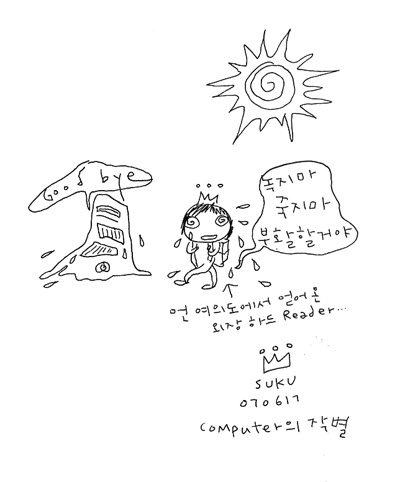 Good bye
녹지마
죽지마
부활할거야
먼 여의도에서 얻어온
외장하드 Reader...
SUKU
070617
computer의 작별